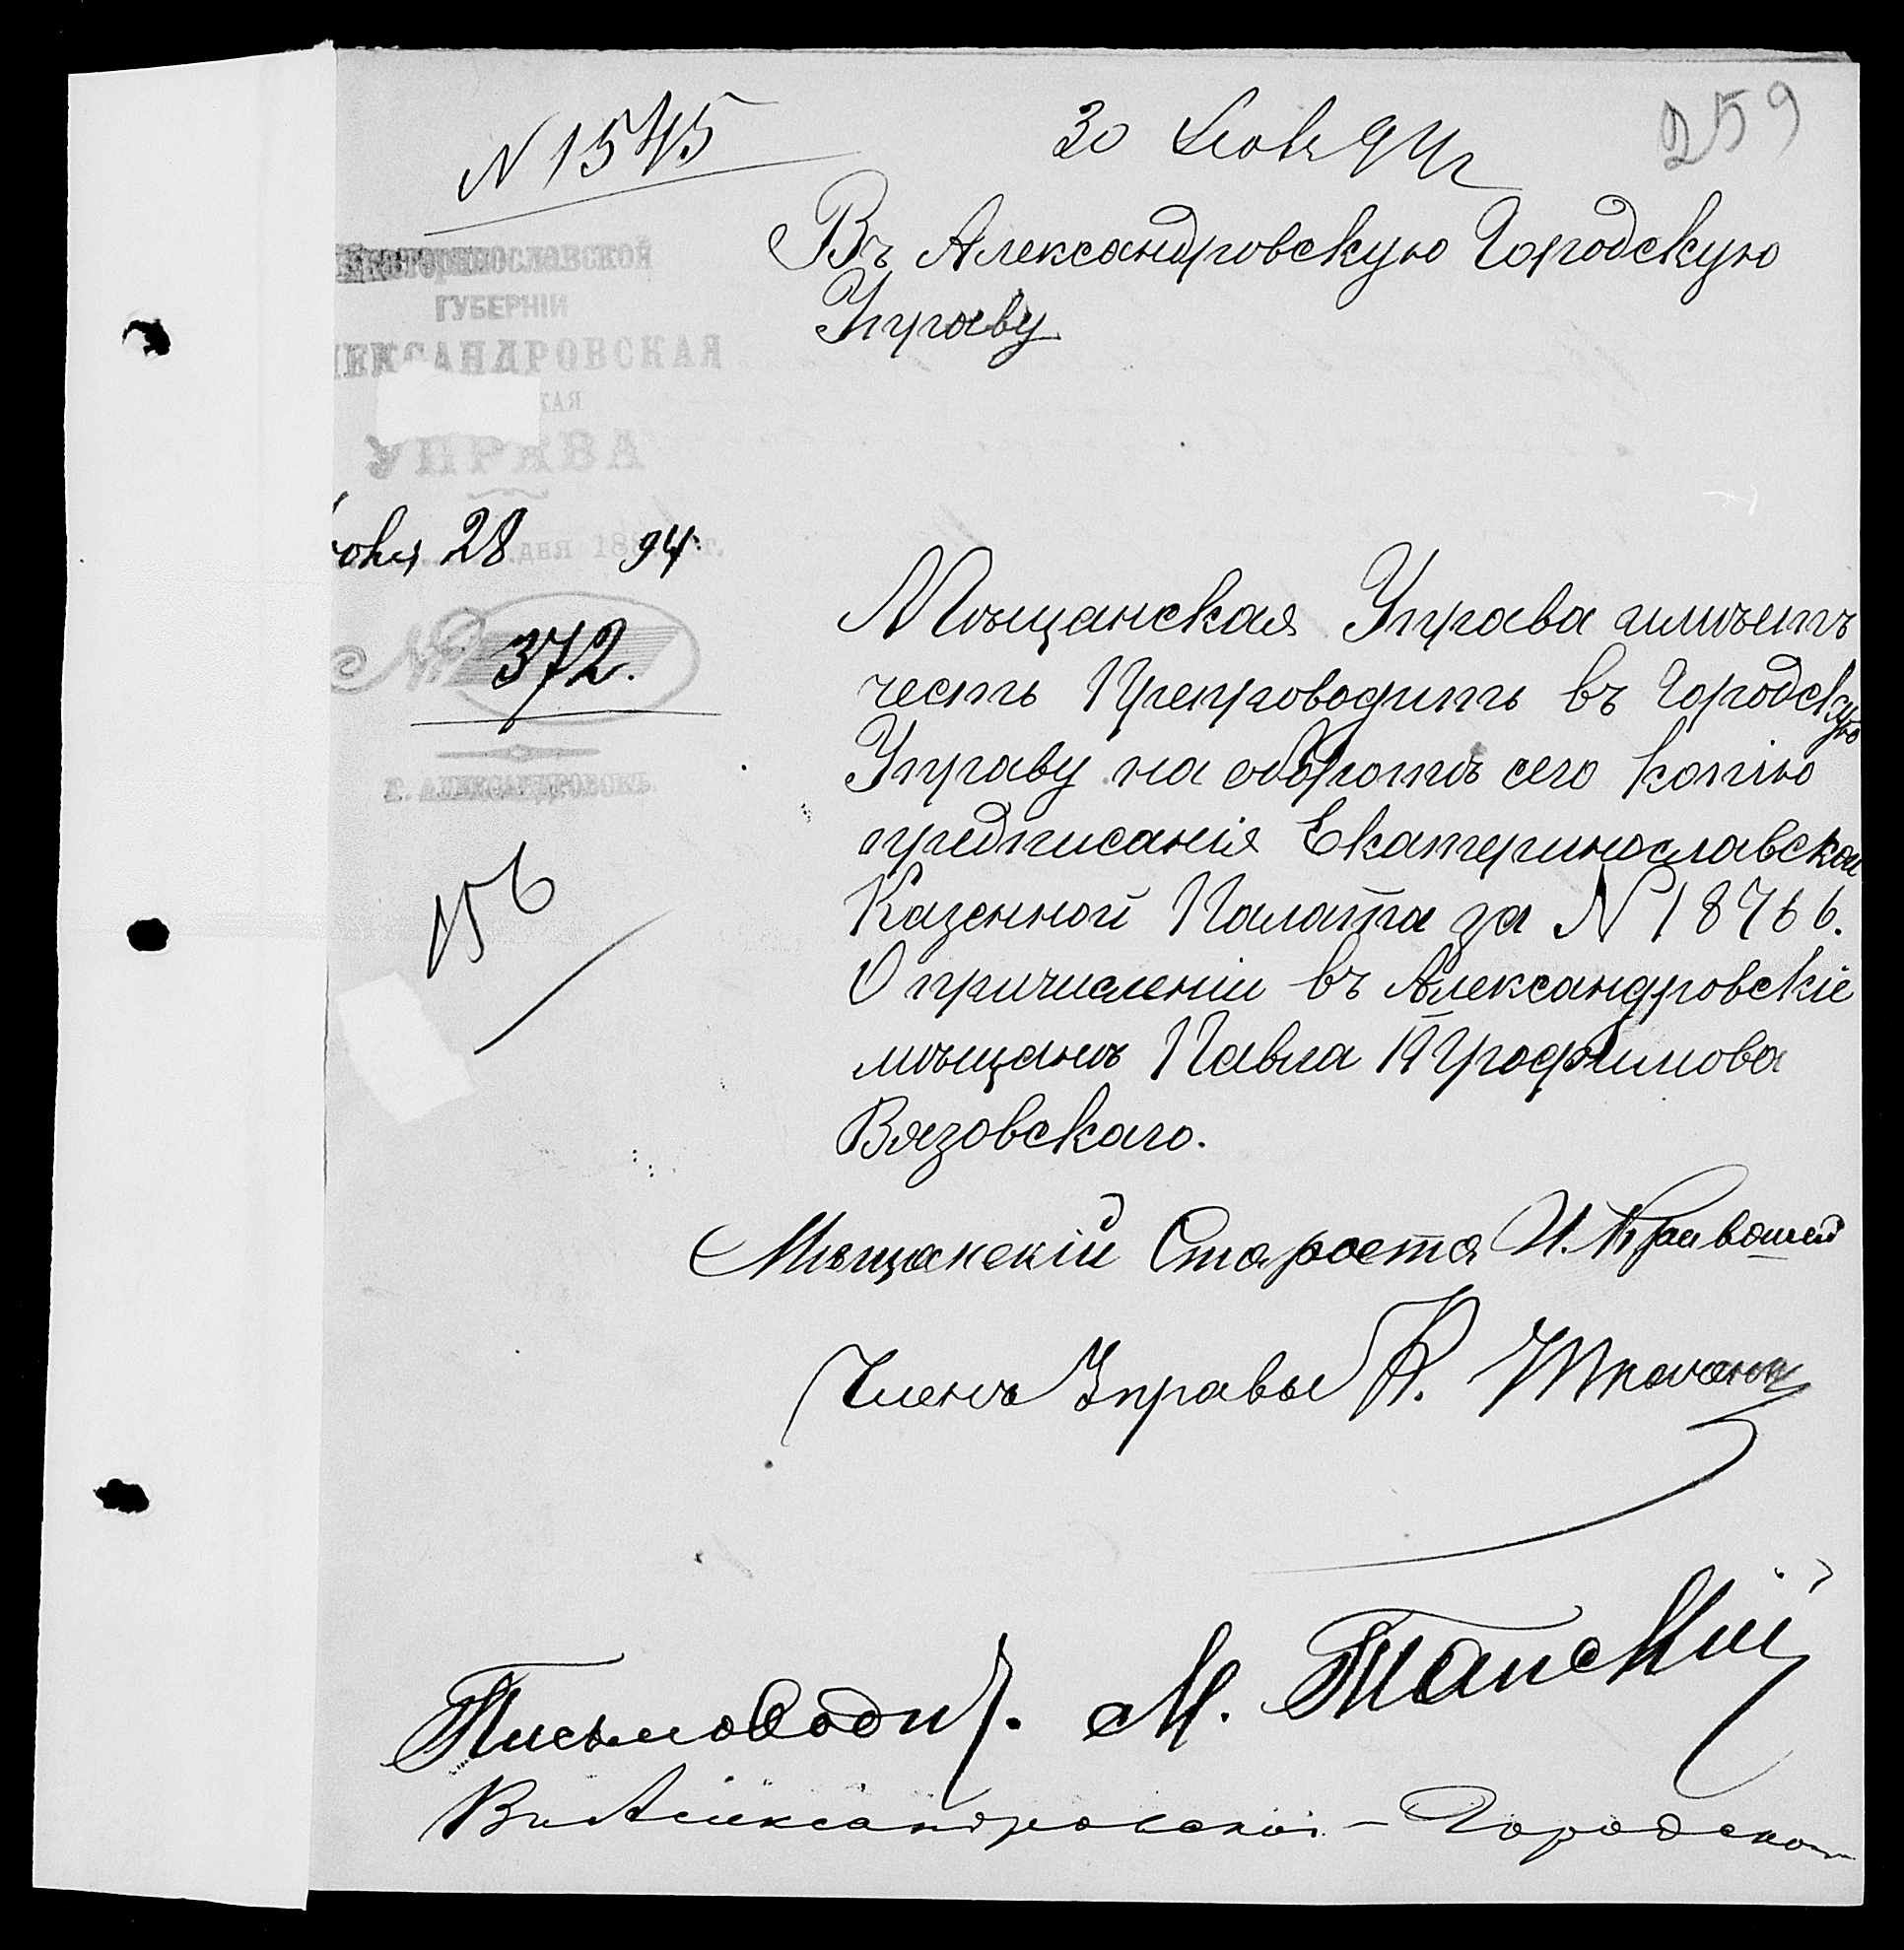 N 1545
30 Июля 94 г
259
Въ Александровскую Городскую
Управу
Екатеринославской
ГУБЕРНІИ
ЛЕКСАНДРОВСКАЯ
КАЯ
УПРАВА
28 дня 18 94 г.
№ 372.
Г. АЛЕКСАНДРОВСКЪ
156
Мѣщанская Управа имѣетъ
честь Препроводить въ Городскую
Управу на оборотѣ сего копію
предписанія Екатеринославской
Казенной Палаты за N 18766.
О причисленіи въ Александровскіе
мѣщанъ Павла Трофимова
Вязовскаго.
Мѣщанскій Староста И.
Членъ Управы
Письмовод. М.
Въ Александровской - Городско